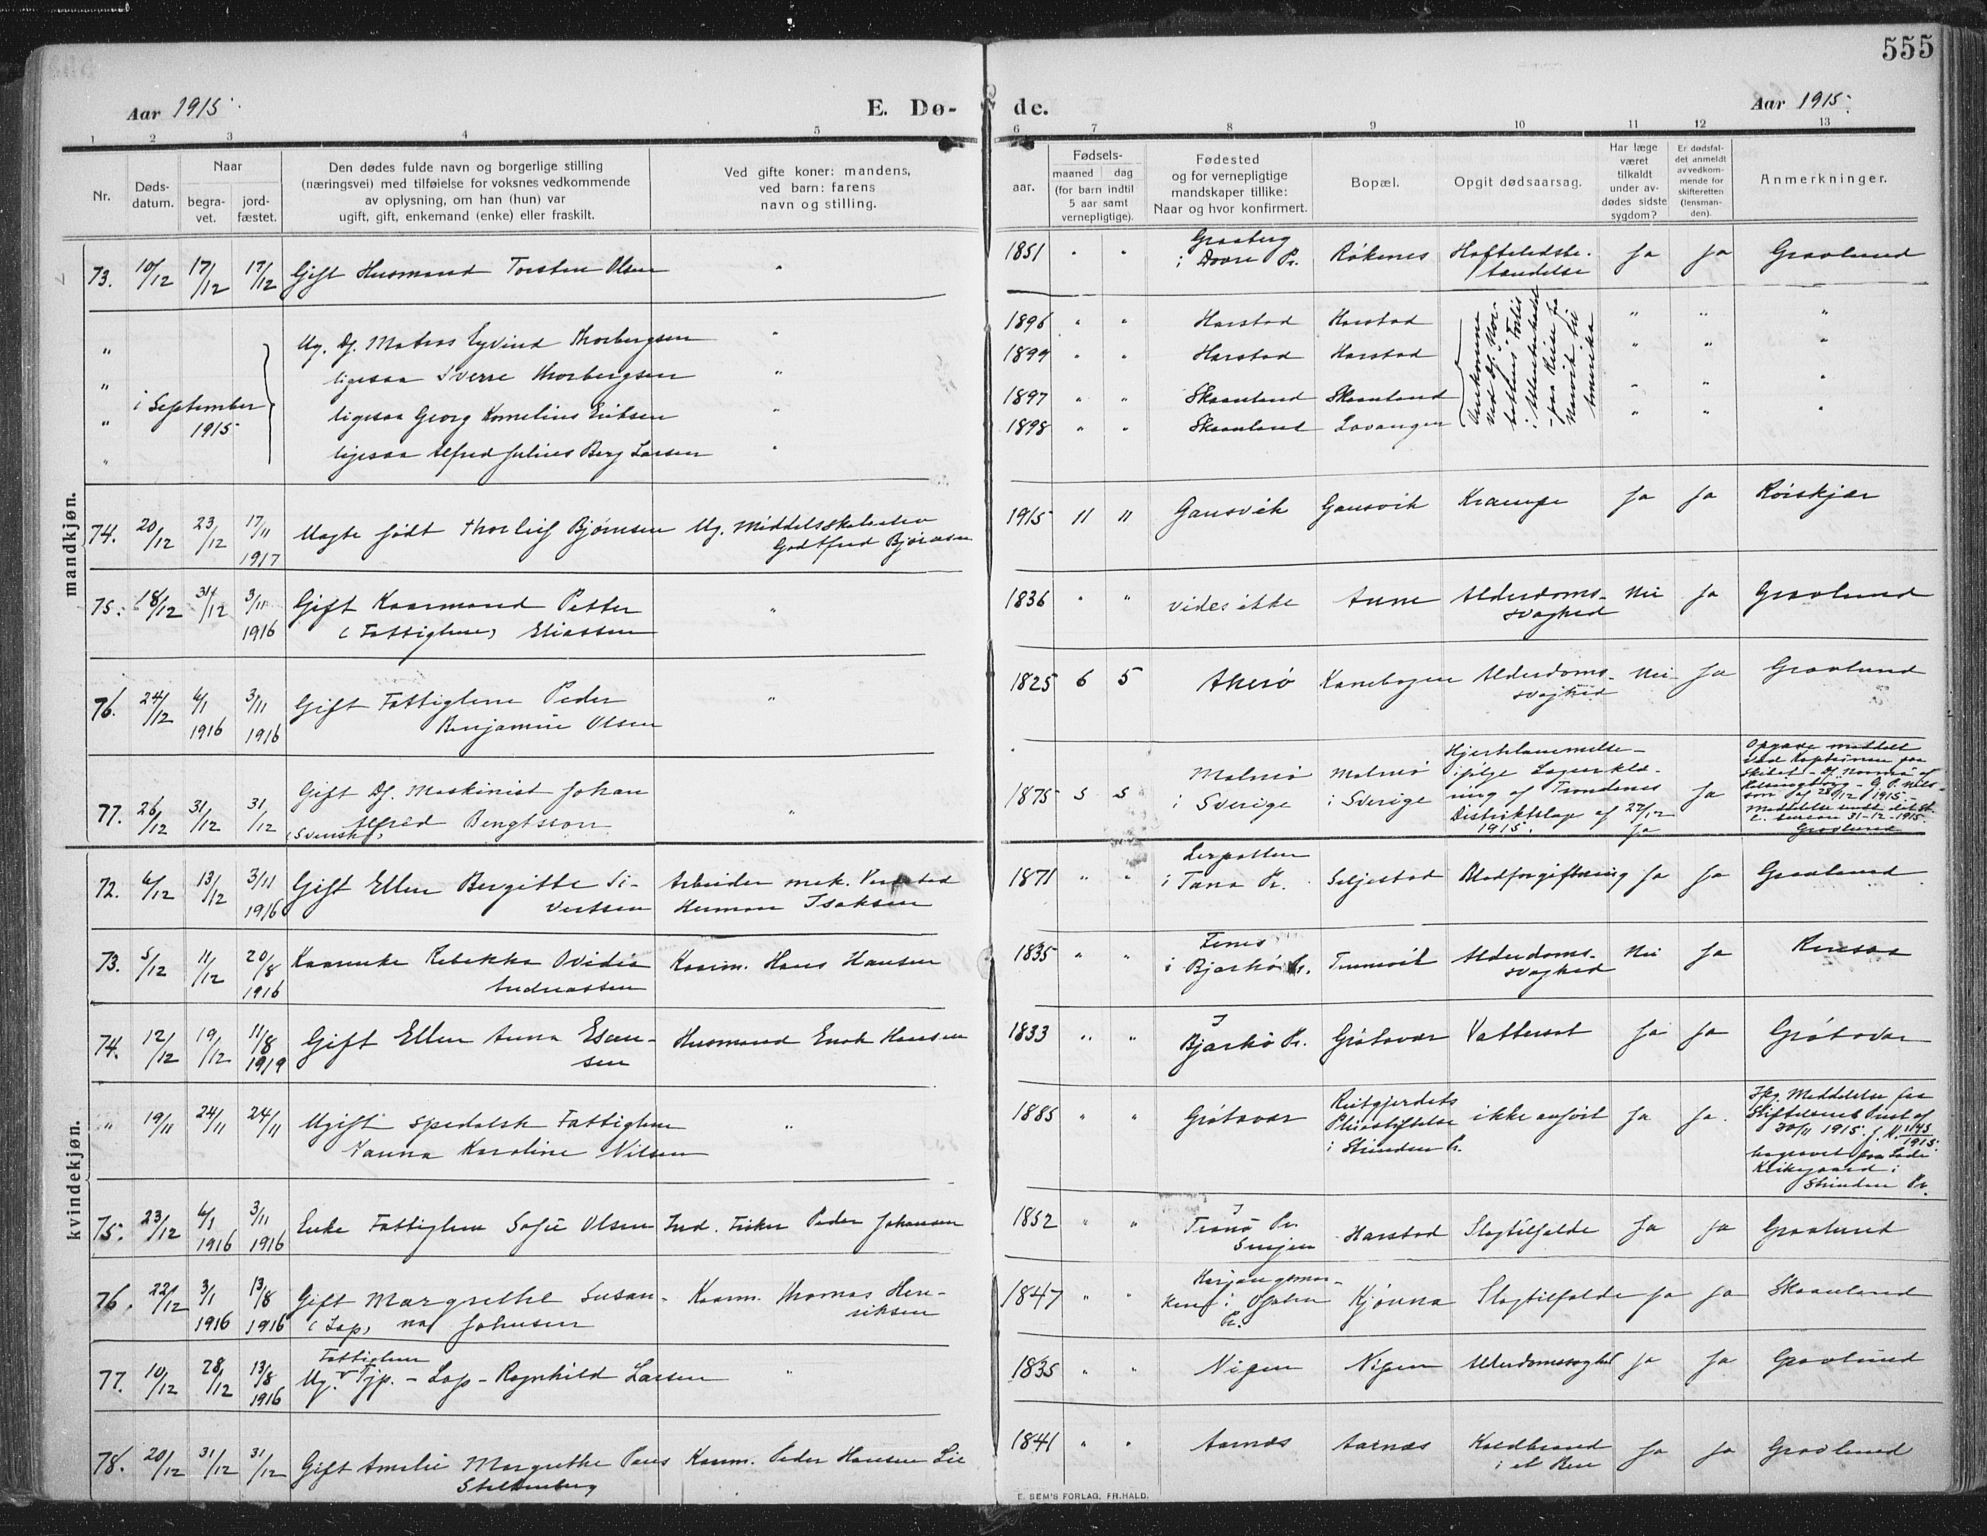 555
Aar 1915.
E. Dø-
de.
Aar 1915.
1 2 3 4 5 6 7 8 9 10 11 12 13
Nr.
Døds-
datum.
Naar
begra-
vet.
jord-
fæstet.
Den dødes fulde navn og borgerlige stilling
(næringsvei) med tilføielse for voksnes vedkommende
av oplysning, om han (hun) var
ugift, gift, enkemand (enke) eller fraskilt.
Ved gifte koner: mandens,
ved barn: farens
navn og stilling.
Fødsels-
aar.
maaned dag
(for barn indtil
5 aar samt
vernepligtige).
Fødested
og for vernepligtige
mandskaper tillike:
Naar og hvor konfirmert.
Bopæl.
Opgit dødsaarsag.
Har læge
været
tilkaldt
under av-
dødes sidste
sygdom?
Er dødsfal-
det anmeldt
av vedkom-
mende for
skifteretten
(lensman-
den).
Anmerkninger.
mandkjøn.
73. 10/12 17/12 17/12 Gift Husmand Torsten Olsen " 1851 " " Graaberg
i Dovre Pr. Røkenes Hofteledsbe-
tændelse Ja Ja Gravlund
" i September
1915
Ug. Df. Matros Eyvind Thorbergsen " 1896 " " Harstad Harstad " " "
" ligesaa Sverre Thorbergsen " 1899 " " Harstad Harstad " " "
" ligesaa Georg Kornelius Eriksen " 1897 " " Skaanland Skaanland " " "
" ligesaa Alfred Julius Berg Larsen " 1898 " " Skaanland Lavangen " " "
Omkomne
ved Df.
forlis
i Atlanterhavet
paa Reise fra
Narvik til
Amerika
74. 20/12 23/12 17/11
1917 Uægte født Thorleif Bjørnsen Ug. Middelsskoleelev
Godtfred Bjørnsen 1915 11 11 Gausvik Gausvik Krampe Ja Ja Rørskjær
75. 18/12 31/12 3/11
1916 Gift Kaarmand Petter
(Fattiglem) Eliassen " 1836 " " vides ikke Aune Alderdoms-
svaghed Nei Ja Gravlund
76. 24/12 6/1
1916 3/11
1916 Gift Fattiglem Peder
Benjamin Olsen " 1825 6 5 Akerø Kanebogen Alderdoms-
svaghed Nei Ja Gravlund
77. 26/12 31/12 31/12 Gift Df. Maskinist Johan
(svensk) Alfred Bengtsson " 1875 5 5 Malmø
i Sverige Malmø
i Sverige Hjertelammelse -
ifølge Lægeerklæ-
ring af Trondenes
Distriktslæge af 27/12
1915. Ja Ja
Opgave meddelt
ved Kapteinen paa
Skibet - Df. Norma af
Helsingborg -
af 28/12 1915 -
Meddelelse sendt
31-12-1915.
Gravlund
kvindekjøn.
72. 6/12 13/12 3/11
1916 Gift Ellen Bergitte Si-
vertsen Arbeider mek. Verksted
Herman Isaksen 1871 " " Leirpollen
i Tana Pr. Seljestad Blodforgiftning Ja Ja Gravlund
73. 5/12 11/12 20/8
1916 Kaarenke Rebekka Ovidia
Andreassen Kaarm. Hans Hansen 1835 " " Fenes
i Bjarkø Pr. Tennvik Alderdoms-
svaghed Nei Ja
74. 12/12 19/12 11/8
1919 Gift Ellen Anna Esaie-
sen Husmand Enok Hansen 1833 " " I
Bjarkø Pr. Grøtavær Vattersot Ja Ja Grøtavær
" 19/11 24/11 24/11 Ugift spedalsk Fattiglem
Nanna Karoline Nilsen " 1885 " " Grøtavær Reitgjerdets
Pleiestiftelse
i Strinden Pr. ikke anført Ja Ja.
Ifg. Meddelelse fra
Stiftelsens Prest af
30/11 1915. J. N. 1145/1915.
begravet paa Lade
Kirkegaard i
Strinden Pr.
75. 23/12 6/1
1916 3/11
1916 Enke Fattiglem Sofie Olsen Ind. Fisker Peder Johansen 1852 " " I
Tranø Pr.
Senjen Harstad Slagtilfælde Ja Ja Gravlund
76. 22/12 3/1
1916 13/8
1916 Gift Margrethe Susan-
(Lap) na Johnsen Kaarm. Thomas Hen-
riksen 1847 " " Herjangsmar-
ken i Ofoten
Pr. Kjønna Slagtilfælde Ja Ja Skaanland
77. 10/12 28/12 13/8
1916 Fattiglem
Ug. Tjp. - Lap - Ragnhild Larsen " 1835 " " Nipen Nipen Alderdomssvaghed Ja Ja Gravlund
78. 20/12 31/12 31/12 Gift Amalie Margrethe Paus
Stoltenberg Kaarm. Peder Hansen Lie 1841 " " Aarnæs Aarnæs Koldbrand
i et Ben Ja Ja Gravlund
E. SEM'S FORLAG, FR.HALD.